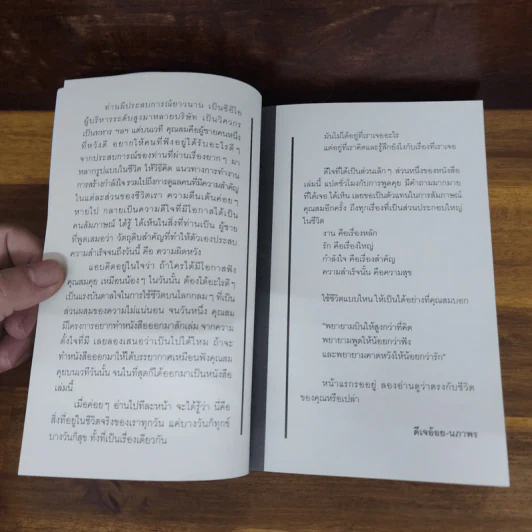 ท่านมีประสบการณ์ยาวนาน เป็นซีอีโอ
ผู้บริหารระดับสูงมาหลายบริษัท เป็นวิศวกร
เป็นทหาร ฯลฯ แต่บนเวที คุณสมคือผู้ชายคนหนึ่ง
ที่หวังดี อยากให้คนที่ฟังอยู่ได้รับอะไรดีๆ
จากประสบการณ์ของท่านที่ผ่านเรื่องยากๆ มา
หลากรูปแบบในชีวิต ให้วิธีคิด แนวทางการทำงาน
การสร้างกำลังใจ รวมไปถึงการดูแลคนที่มีความสำคัญ
ในแต่ละส่วนของชีวิตเรา ความตื่นเต้นค่อยๆ
หายไป กลายเป็นความดีใจที่มีโอกาสได้เป็น
คนสัมภาษณ์ ได้รู้ ได้เห็นในสิ่งที่ท่านเป็น ผู้ชาย
ที่พูดเสมอว่า วัตถุดิบสำคัญที่ทำให้ตัวเองประสบ
ความสำเร็จจนถึงวันนี้ คือ ความผิดหวัง
แอบคิดอยู่ในใจว่า ถ้าใครได้มีโอกาสฟัง
คุณสมคุย เหมือนน้องๆ ในวันนั้น ต้องได้อะไรดีๆ
เป็นแรงบันดาลใจในการใช้ชีวิตบนโลกกลมๆ ที่เป็น
ส่วนผสมของความไม่แน่นอน จนวันหนึ่ง คุณสม
มีโครงการอยากทำหนังสือออกมาสักเล่ม จากความ
ตั้งใจที่มี เลยลองเสนอว่าเป็นไปได้ไหม ถ้าจะ
ทำหนังสือออกมาให้ได้บรรยากาศเหมือนฟังคุณสม
คุยบนเวทีวันนั้น จนในที่สุดก็ได้ออกมาเป็นหนังสือ
เล่มนี้
เมื่อค่อยๆ อ่านไปทีละหน้า จะได้รู้ว่า นี่คือ
สิ่งที่อยู่ในชีวิตจริงของเราทุกวัน แค่บางวันก็ทุกข์
บางวันก็สุข ทั้งที่เป็นเรื่องเดียวกัน
มันไม่ได้อยู่ที่เราเจออะไร
แต่อยู่ที่เราคิดและรู้สึกยังไงกับเรื่องที่เราเจอ
ดีใจที่ได้เป็นส่วนเล็กๆ ส่วนหนึ่งของหนังสือ
เล่มนี้ แปดชั่วโมงกับการพูดคุย มีคำถามมากมาย
ที่ได้เจอ ได้เห็น เลยขอเป็นตัวแทนในการสัมภาษณ์
คุณสมอีกครั้ง ถึงทุกเรื่องที่เป็นส่วนประกอบใหญ่
ในชีวิต
งาน คือเรื่องหลัก
รัก คือเรื่องใหญ่
กำลังใจ คือเรื่องสำคัญ
ความสำเร็จนั้น คือความสุข
ใช้ชีวิตแบบไหน ให้เป็นได้อย่างที่คุณสมบอก
"พยายามบินให้สูงกว่าที่คิด
พยายามพูดให้น้อยกว่าฟัง
และพยายามคาดหวังให้น้อยกว่ารัก"
หน้าแรกรออยู่ ลองอ่านดูว่าตรงกับชีวิต
ของคุณหรือเปล่า
ดีเจอ้อย-นภาพร